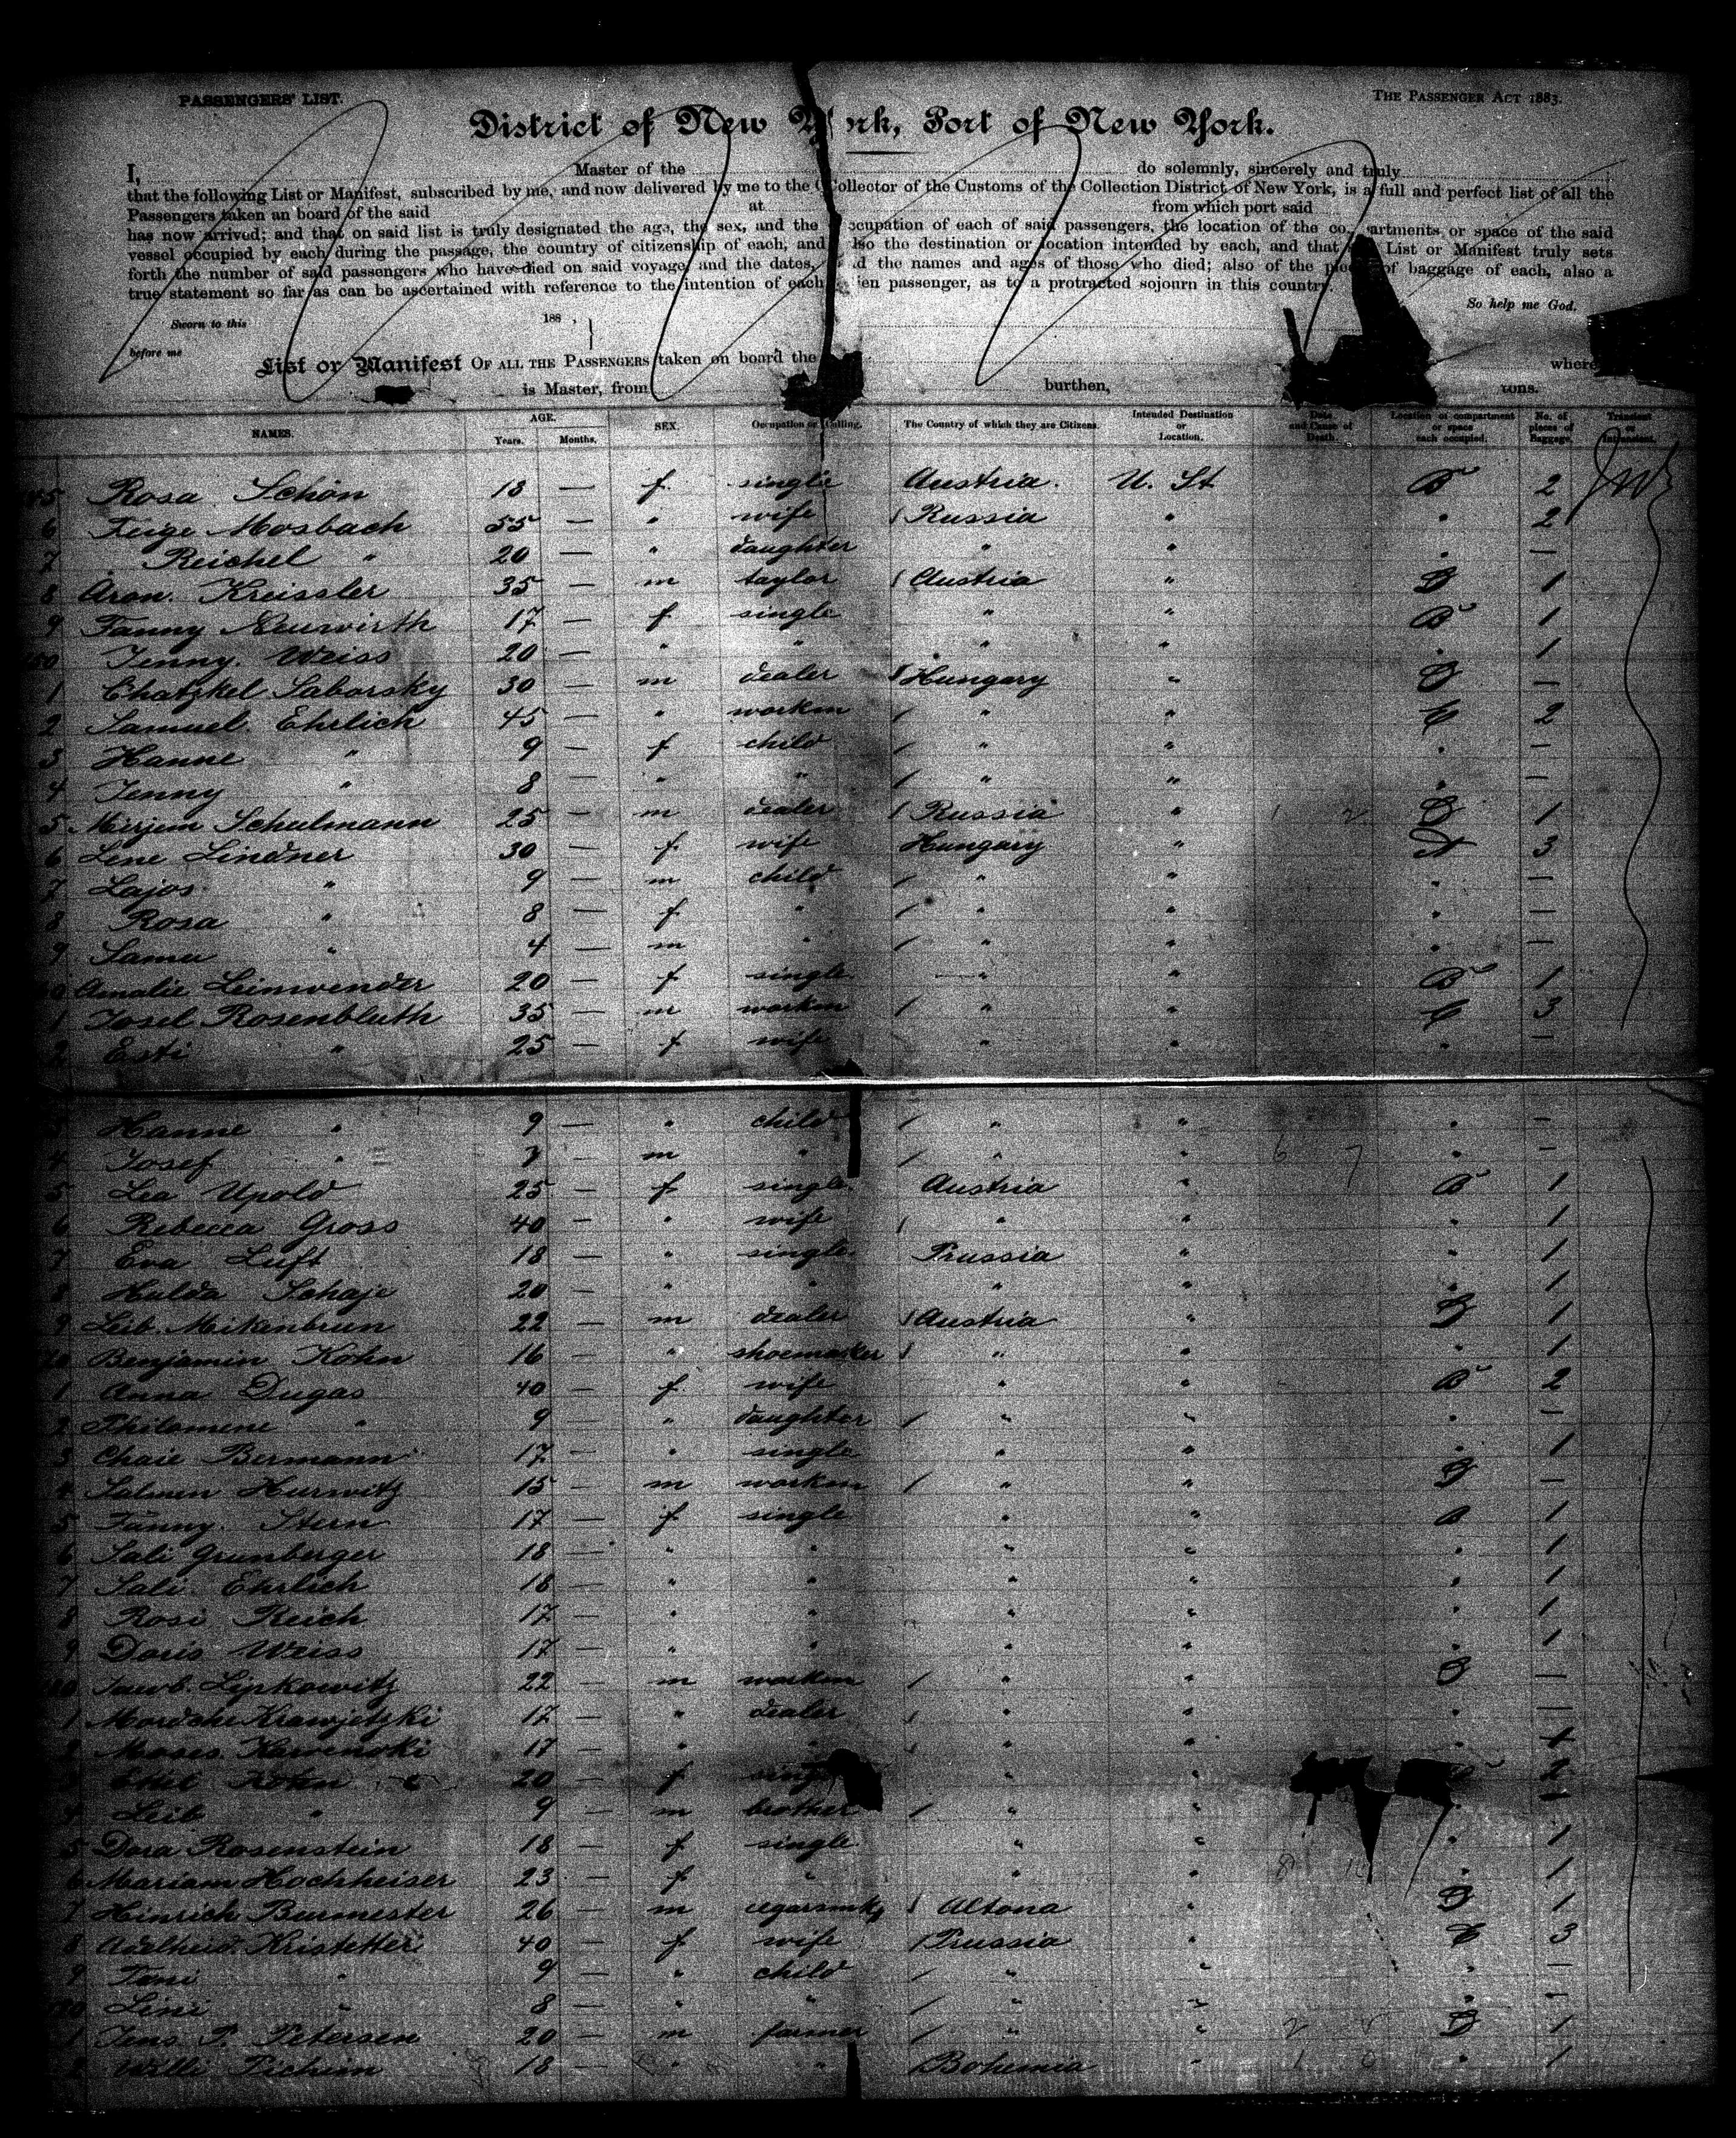 PASSENGERS' LIST.
THE PASSENGER ACT 1883.
District of New York, Port of New York.
I, Master of the do solemnly, sincerely and truly
that the following List or Manifest, subscribed by me, and now delivered by me to the Collector of the Customs of the Collection District of New York, is a full and perfect list of all the
Passengers taken an board of the said at from which port said
has now arrived; and that on said list is truly designated the age, the sex, and the occupation of each of said passengers, the location of the compartments or space of the said
vessel occupied by each during the passage, the country of citizenship of each, and also the destination or location intended by each, and that List or Manifest truly sets
forth the number of said passengers who have died on said voyage, and the dates, and the names and ages of those who died; also of the of baggage of each, also a
true statement so far as can be ascertained with reference to the intention of each passenger, as to a protracted sojourn in this country.
So help me God.
Sworn to this 188 ,
before me
List or Manifest OF ALL THE PASSENGERS taken on board the where
is Master, from burthen, tons.
NAMES. AGE. Years. Months. SEX. Occupation or Calling. The Country of which they are Citizens. Intended Destination or Location. Date and Cause of Death. Location of compartment or space each occupied. No. of pieces of Baggage. Transient or
5 Rosa Schön 18 — f. single Austria. U. St B 2
6 Feige Mosbach 55 — " wife Russia " " 2
7 Reichel " 20 — " daughter " " " —
8 Aron. Kreissler 35 — m taylor Austria " 1
9 Fanny Neuwirth 17 — f single " " B 1
50 Jenny. Weiss 20 — " " " " " 1
1 Chatzkel Saborsky 30 — m dealer Hungary " —
2 Samuel. Ehrlich 45 — " workm " " C 2
3 Hanne " 9 — f child " " " —
4 Jenny " 8 — " " " " " —
5 Mirjem Schulmann 25 — m dealer Russia " 1 2 1
6 Lene Lindner 30 — f wife Hungary " 3
7 Lajos " 9 — m child " " " —
8 Rosa " 8 — f " " " " —
9 Samu " 4 — m " " " " —
0 Amalie Leinwender 20 — f single " " B 1
1 Josel Rosenbluth 35 — m workm " " C 3
2 Esti " 25 — f wife " " " —
Hanne " 9 — " child " " " —
4 Josef " — m " " " 6 7 " —
5 Lea Upold 25 — f single Austria " B 1
6 Rebecca Gross 40 — " wife " " " 1
7 Eva Luft 18 — " single Prussia " " 1
8 Hulda Schaje 20 — " " " " " 1
9 Leib. Mikenbrun 22 — m dealer Austria " 1
70 Benjamin Kohn 16 — " shoemaker " " " 1
1 Anna Dugas 40 — f wife " " B 2
2 Philomene " 9 — " daughter " " " —
3 Chaie Bermann 17 — " single " " " 1
4 Salmen Hurwitz 15 — m workm " " —
5 Fanny. Stern 17 — f single " " B 1
6 Sali Grunberger 18 — " " " " " 1
7 Sali. Ehrlich 18 — " " " " " 1
8 Rosi Reich 17 — " " " " " 1
9 Doris Weiss 17 — " " " " " 1
80 Lipkowitz 22 — m workm " " —
1 Mordche 17 — " dealer " " " —
2 Moses. 17 — " " " " " 1
3 Kohn 20 — f single " " 2
4 Leib " 9 — m brother " " " —
5 Dora Rosenstein 18 — f single " " " 1
6 Mariam Hochheiser 23 — f " " " 8 " 1
7 Heinrich Burmester 26 — m Altona " 1
8 Adelheid. Kristetter 40 — f wife Prussia " C 3
9 Toni " 9 — " child " " " —
Lini " 8 — " " " " " —
1 Jens P. Petersen 20 — m farmer " " 2 1
2 Willi Pichum 18 — " " Bohemia " 1 " 1